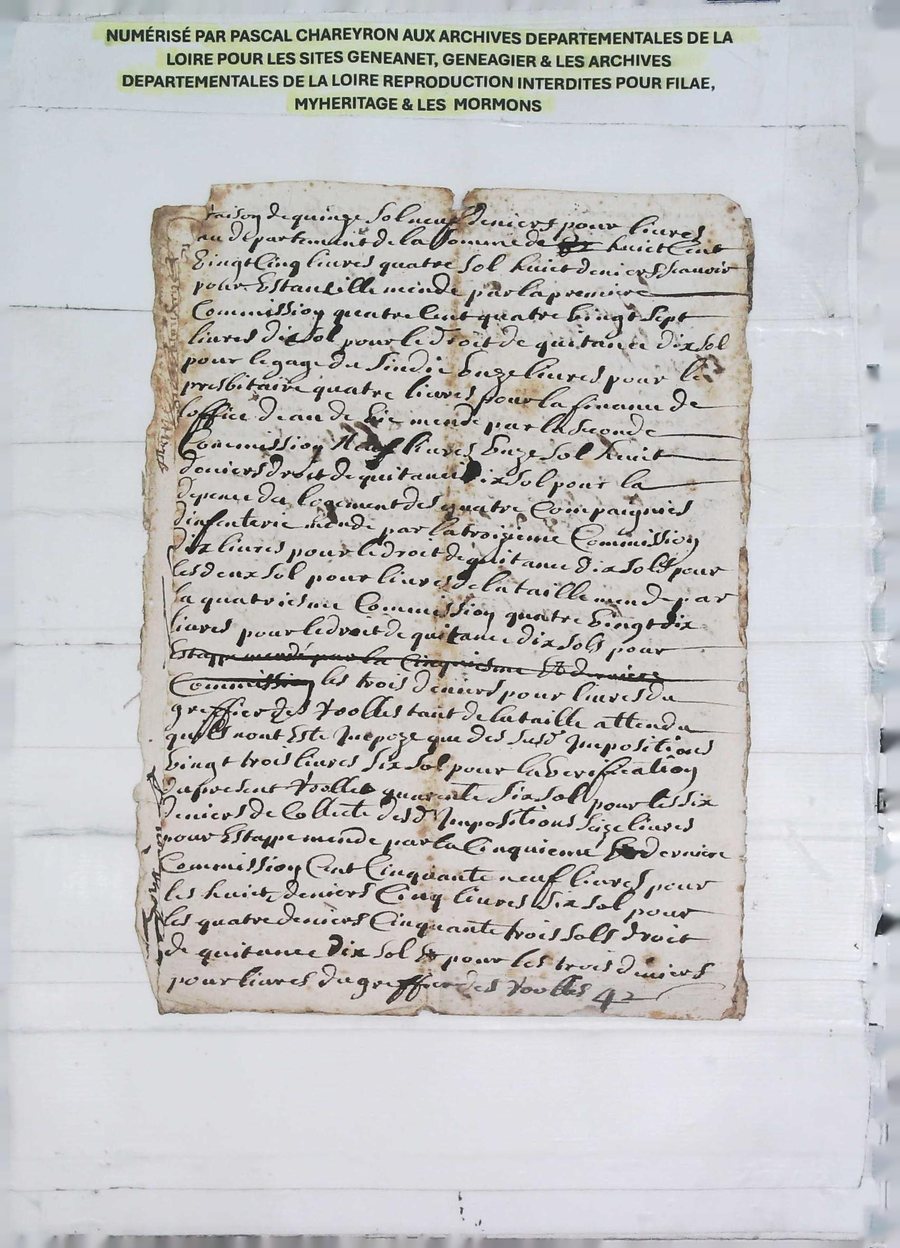 NUMÉRISÉ PAR PASCAL CHAREYRON AUX ARCHIVES DEPARTEMENTALES DE LA
LOIRE POUR LES SITES GENEANET, GENEAGIER & LES ARCHIVES
DEPARTEMENTALES DE LA LOIRE REPRODUCTION INTERDITES POUR FILAE,
MYHERITAGE & LES MORMONS
raison de quinze sol neuf deniers pour livres
au departement de la somme de huict cent
vingt cinq livres quatre sol huict deniers scavoir
pour Estau taille mende par la premiere
Commission quatre cent quatre vingt sept
livres dix sol pour le droit de quitance dix sol
pour le gage du sindic onze livres pour le
presbitaire quatre livres pour la finance de
loffice mende par la seconde
Commission neuf livres onze sol huit
deniers droit de quitance dix sol pour la
depence du logement des quatre Compaignies
dinfenterie mende par la troizieme Commission
dix livres pour le droit de quitance dix sols pour
les deux sol pour livres de la taille mende par
la quatriesme Commission quatre vingt dix
livres pour le droit de quitance dix sols pour
Estappe mendé par la Cinquiesme et derniere
Commission les trois deniers pour livres du
greffier des Roolles tant de la taille attendu
quils nont este Impoze que des susd Impositions
vingt trois livres six sol pour la verification
du present Roolle quarente six sol pour les six
deniers de Collecte desd Impositions seize livres
pour Estappe mende par la Cinquieme derniere
Commission Cent Cinquante neuf livres pour
les huict deniers Cinq livres six sol pour
les quatre deniers Cinquante trois sols droit
de quitance dix sol pour les trois deniers
pour livres du greffier des Roolles 42